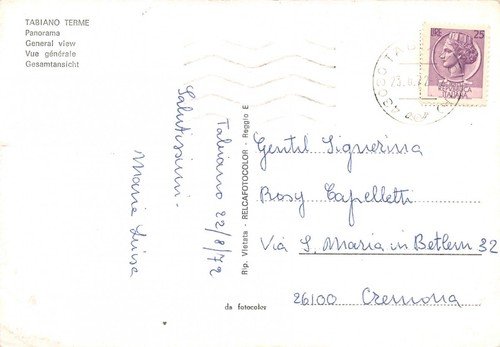 TABIANO TERME
Panorama
General view
Vue générale
Gesamtansicht
LIRE 25
REPUBBLICA
ITALIANA
Tabiano 22/8/72
Salutissimi.
Maria Luisa
Rip. Vietata - RELCAFOTOCOLOR - Reggio E
Gentil Signorina
Rosy Capelletti
Via S. Maria in Betlem 32
26100 Cremona
da fotocolor